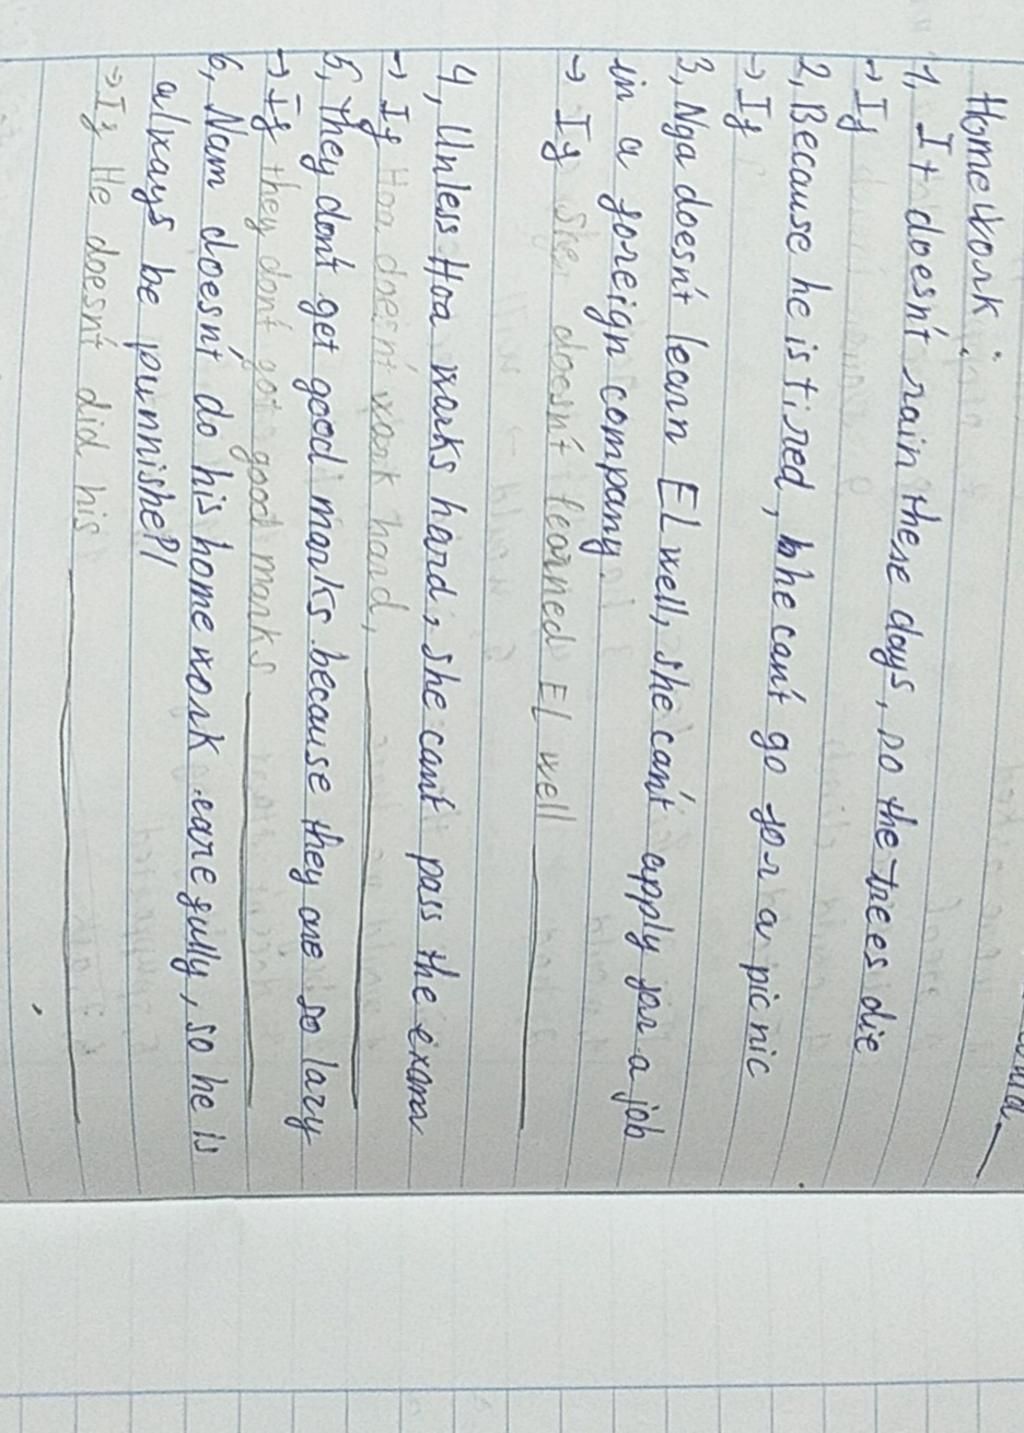 Homework:
1, It doesn't rain these days, so the trees die
→ If
2, Because he is tired, he can't go for a picnic
→ If
3, Nga doesn't learn EL well, she can't apply for a job
in a foreign company.
→ If she doesn't learned EL well
4, Unless Hoa works hard, she can't pass the exam
→ If Hoa doesn't work hard,
5, They don't get good marks because they are so lazy
→ If they don't got good marks
6, Nam doesn't do his homework carefully, so he is
always be punnishe?!
→ If He doesn't did his